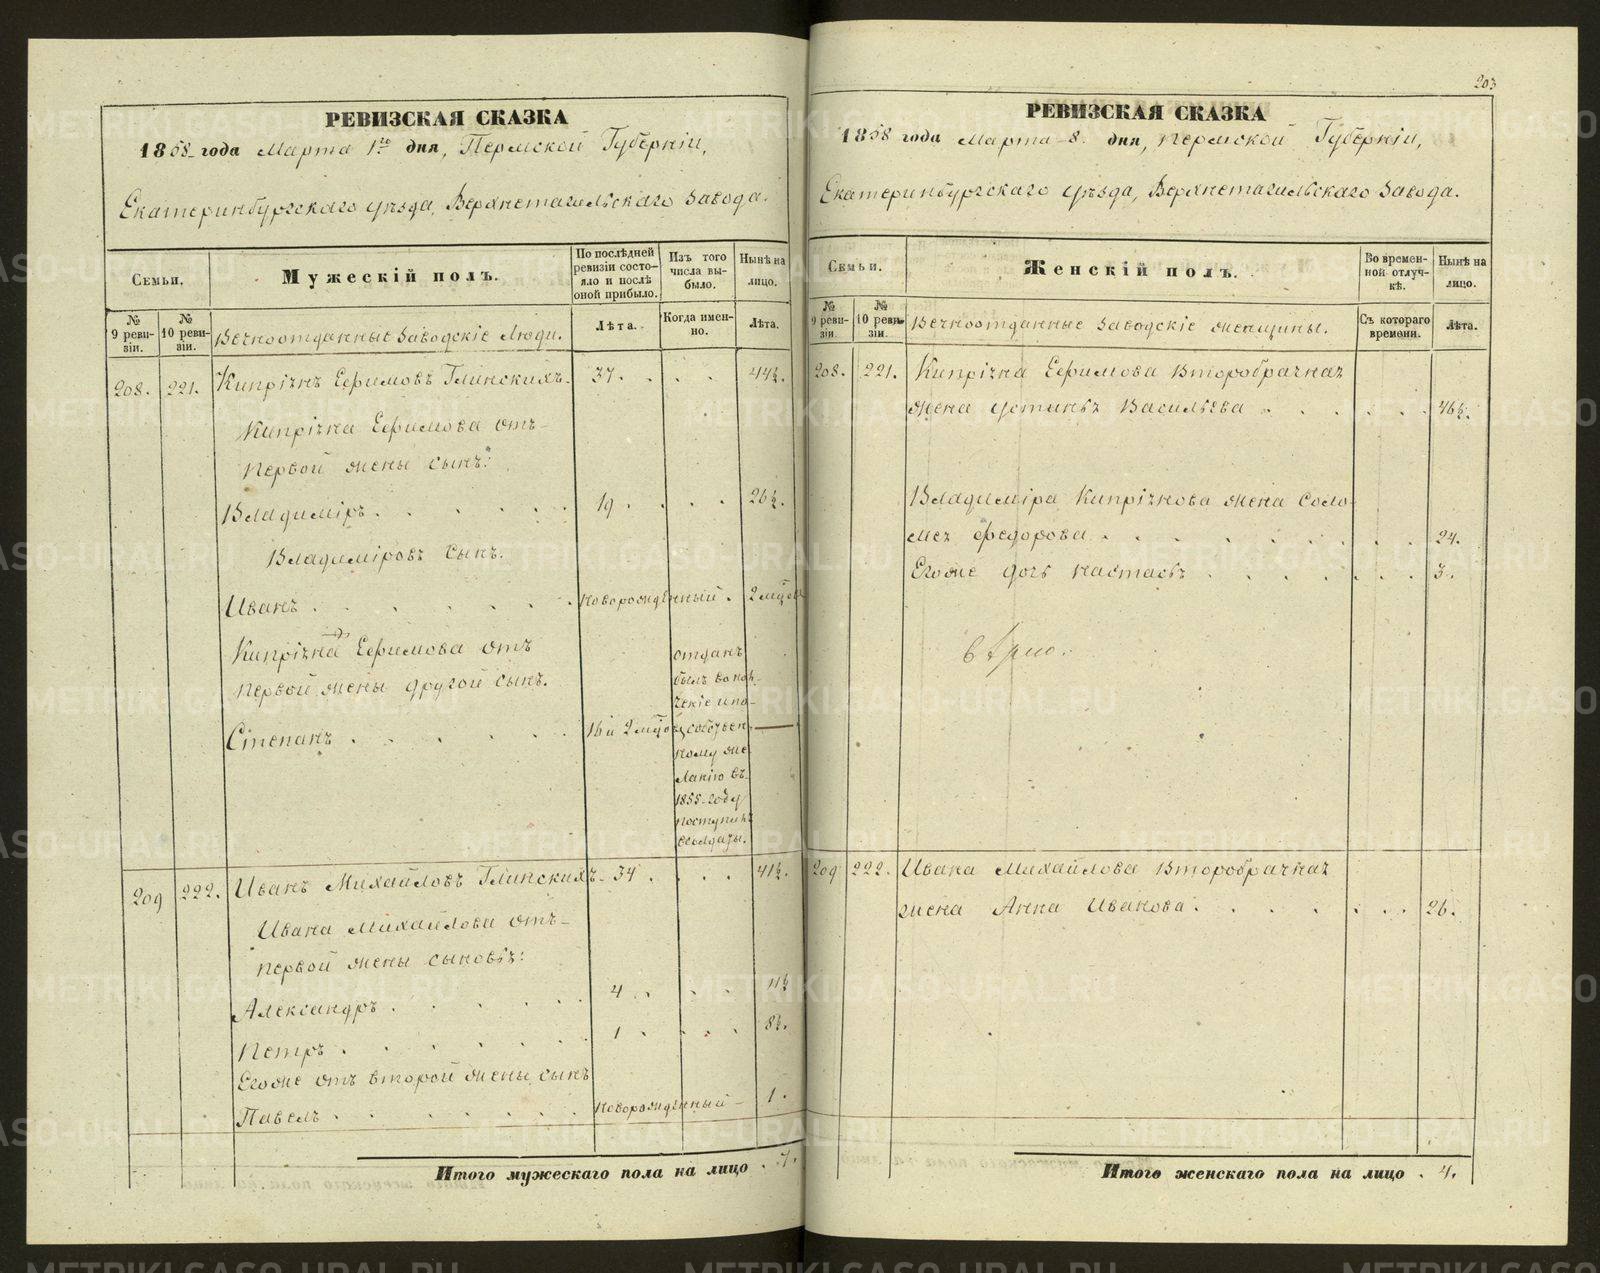 203
РЕВИЗСКАЯ СКАЗКА
1858 года Марта 1го дня, Пермской Губерніи,
Екатеринбургскаго уѣзда, Верхнетагильскаго Завода.
Семьи.
Мужескій полъ.
По послѣдней ревизіи состояло и послѣ оной прибыло.
Изъ того числа выбыло.
Нынѣ на лицо.
№ 9 ревизіи.
№ 10 ревизіи.
Вечноотданные Заводскіе Люди.
Лѣта.
Когда именно.
Лѣта.
208. 221. Кипріянъ Ефимовъ Глинскихъ 37. 44½.
Кипріяна Ефимова отъ
первой жены сынъ:
Владиміръ 19. 26½.
Владиміровъ сынъ.
Иванъ новорожденный. 2 мцовъ
Кипріяна Ефимова отъ
первой жены другой сынъ.
Степанъ 16 и 2 мцовъ
отданъ
былъ
собствен-
ному же
ланію въ
1855 году
поступилъ
всолдаты.
209 222. Иванъ Михайловъ Глинскихъ 34. 41½.
Ивана Михайлова отъ
первой жены сыновья:
Александръ 4. 11½
Петръ 1. 8½.
Егоже отъ второй жены сынъ
Павелъ новорожденный 1.
Итого мужескаго пола на лицо 7.
РЕВИЗСКАЯ СКАЗКА
1858 года Марта 8. дня, Пермской Губерніи,
Екатеринбургскаго уѣзда, Верхнетагильскаго Завода.
Семьи.
Женскій полъ.
Во временной отлучкѣ.
Нынѣ на лицо.
№ 9 ревизіи.
№ 10 ревизіи.
Вечноотданные Заводскіе женщины.
Съ котораго времени.
Лѣта.
208. 221. Кипріяна Ефимова Второбрачная
жена Устинья Васильева 46½.
Владиміра Кипріянова жена Соло-
мея Федорова 24.
Егоже дочь Настасья 3.
вѣрно.
209 222. Ивана Михайлова Второбрачная
жена Анна Иванова. 26.
Итого женскаго пола на лицо 4.
METRIKI.GASO-URAL.RU